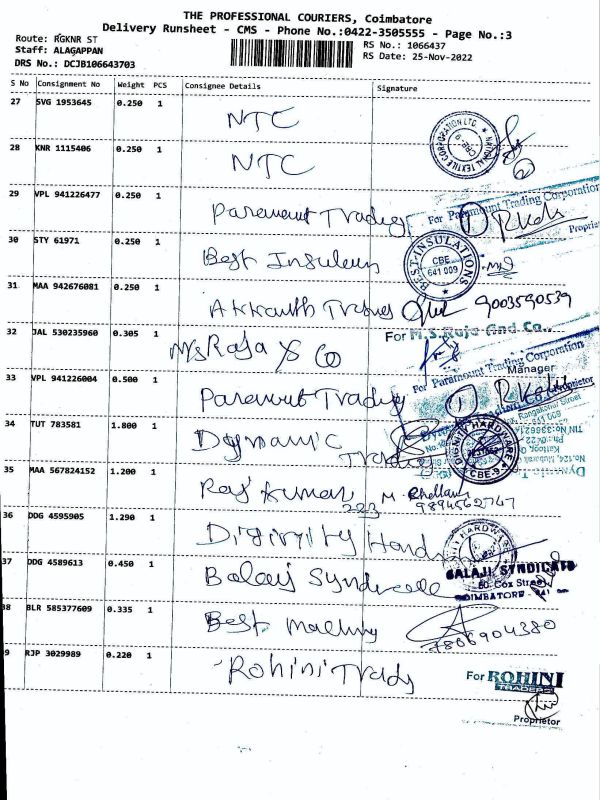 THE PROFESSIONAL COURIERS, Coimbatore
Delivery Runsheet - CMS - Phone No.:0422-3505555 - Page No.:3
Route: RGKNR ST
RS No.: 1066437
Staff: ALAGAPPAN
RS Date: 25-Nov-2022
DRS No.: DCJB106643703
S No Consignment No Weight PCS Consignee Details Signature
27 SVG 1953645 0.250 1
NTC
NATIONAL TEXTILE CORPORATION LTD. CBE 9
28 KNR 1115406 0.250 1
NTC
29 VPL 941226477 0.250 1
Paramount Trading
For Paramount Trading Corporation
30 STY 61971 0.250 1
Best Insulens
BEST INSULATIONS CBE 641 009
31 MAA 942676081 0.250 1
9003590539
32 JAL 530235960 0.305 1
M/s Raja & Co
For M.S. Raja And Co.,
Manager
33 VPL 941226004 0.500 1
Paramount Trading
For Paramount Trading Corporation
Proprietor
34 TUT 783581 1.800 1
Dynamic Trading
HARDWARE CBE-9
35 MAA 567824152 1.200 1
Raj Kumar
223
9894562747
36 DDG 4595905 1.290 1
Hard
37 DDG 4589613 0.450 1
Balaji Syndicate
BALAJI SYNDICATE
60, Cox Street
COIMBATORE - 641
38 BLR 585377609 0.335 1
Best
7806904380
9 RJP 3029989 0.220 1
Rohini Trady
For ROHINI
TRADERS
Proprietor